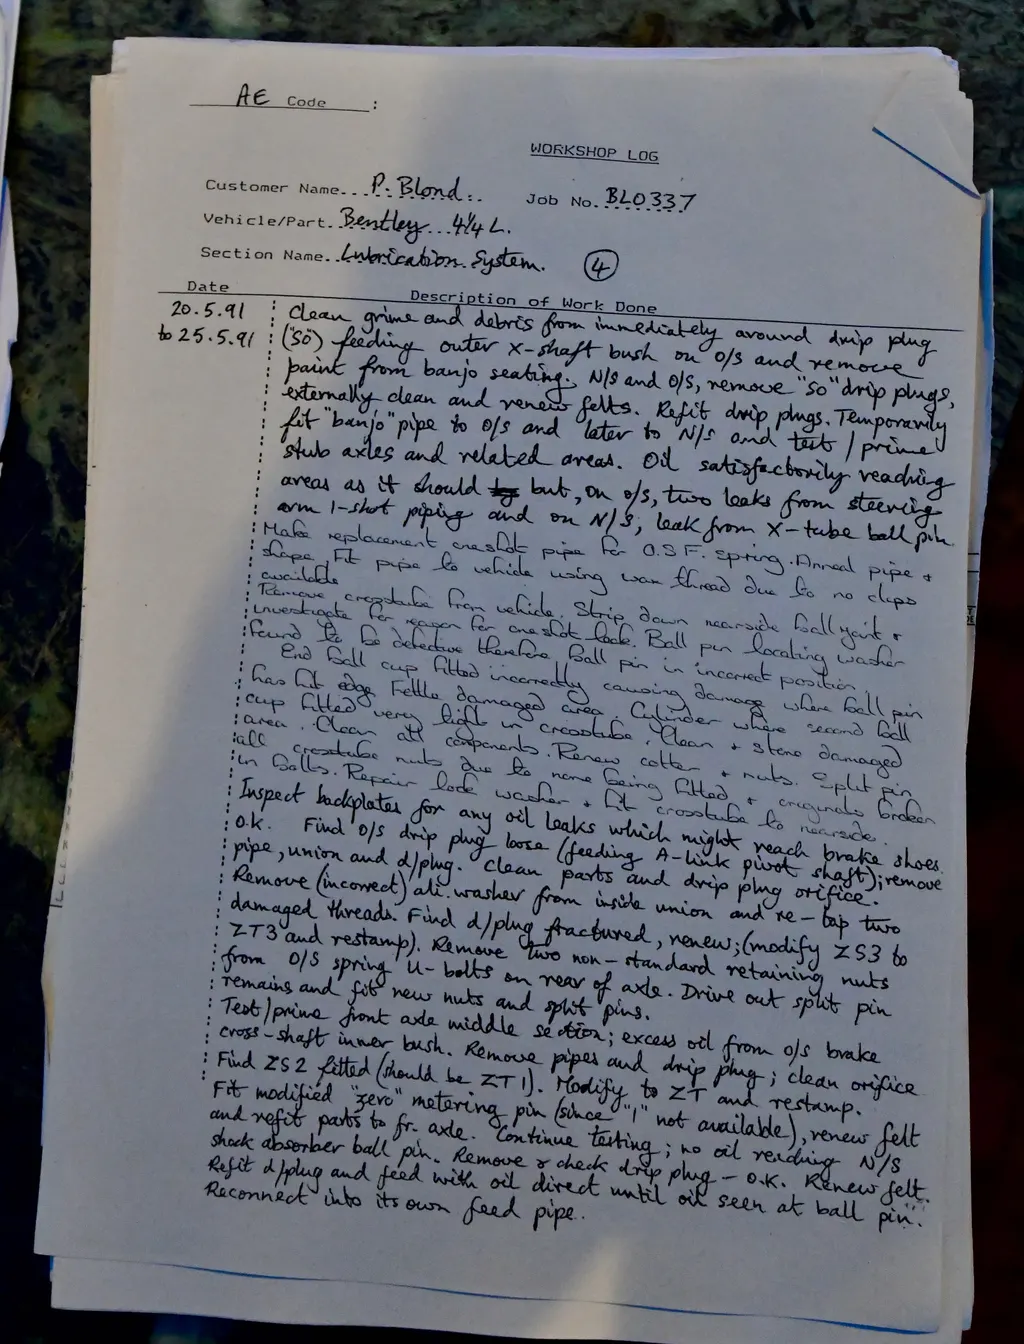 AE Code :
WORKSHOP LOG
Customer Name... P. Blond... Job No. BLO337
Vehicle/Part.. Bentley... 4¼ L.
Section Name.. Lubrication System. 4
Date Description of Work Done
20.5.91 Clean grime and debris from immediately around drip plug
to 25.5.91 ("SO") feeding outer X-shaft bush on O/S and remove
paint from banjo seating. N/S and O/S, remove "SO" drip plugs,
externally clean and renew felts. Refit drip plugs. Temporarily
fit "banjo" pipe to O/S and later to N/S and test/prime
stub axles and related areas. Oil satisfactorily reaching
areas as it should but, on O/S, two leaks from steering
arm 1-shot piping and on N/S, leak from X-tube ball pin.
Make replacement oneshot pipe for O.S.F. spring. Anneal pipe +
shape. Fit pipe to vehicle using wax thread due to no clips
available
Remove crosstube from vehicle. Strip down nearside ball joint +
investigate for reason for oneshot leak. Ball pin locating washer
found to be defective therefore ball pin in incorrect position.
End ball cup fitted incorrectly causing damage where ball pin
has hit edge. Fettle damaged area. Cylinder where second ball
cup fitted very tight in crosstube. Clean + stone damaged
area. Clean all components. Renew cotter + nuts. Split pin
all crosstube nuts due to none being fitted + originals broken
in bolts. Repair lock washer + fit crosstube to nearside.
Inspect backplates for any oil leaks which might reach brake shoes.
O.K. Find O/S drip plug loose (feeding A-Link pivot shaft); remove
pipe, union and d/plug. Clean parts and drip plug orifice.
Remove (incorrect) ali. washer from inside union and re-tap two
damaged threads. Find d/plug fractured, renew; (modify ZS3 to
ZT3 and restamp). Remove two non-standard retaining nuts
from O/S spring U-bolts on rear of axle. Drive out split pin
remains and fit new nuts and split pins.
Test/prime front axle middle section; excess oil from O/S brake
cross-shaft inner bush. Remove pipes and drip plug; clean orifice
Find ZS2 fitted (should be ZT1). Modify to ZT and restamp.
Fit modified "zero" metering pin (since "1" not available), renew felt
and refit parts to fr. axle. Continue testing; no oil reaching N/S
shock absorber ball pin. Remove & check drip plug - O.K. Renew felt.
Refit d/plug and feed with oil direct until oil seen at ball pin.
Reconnect into its own feed pipe.